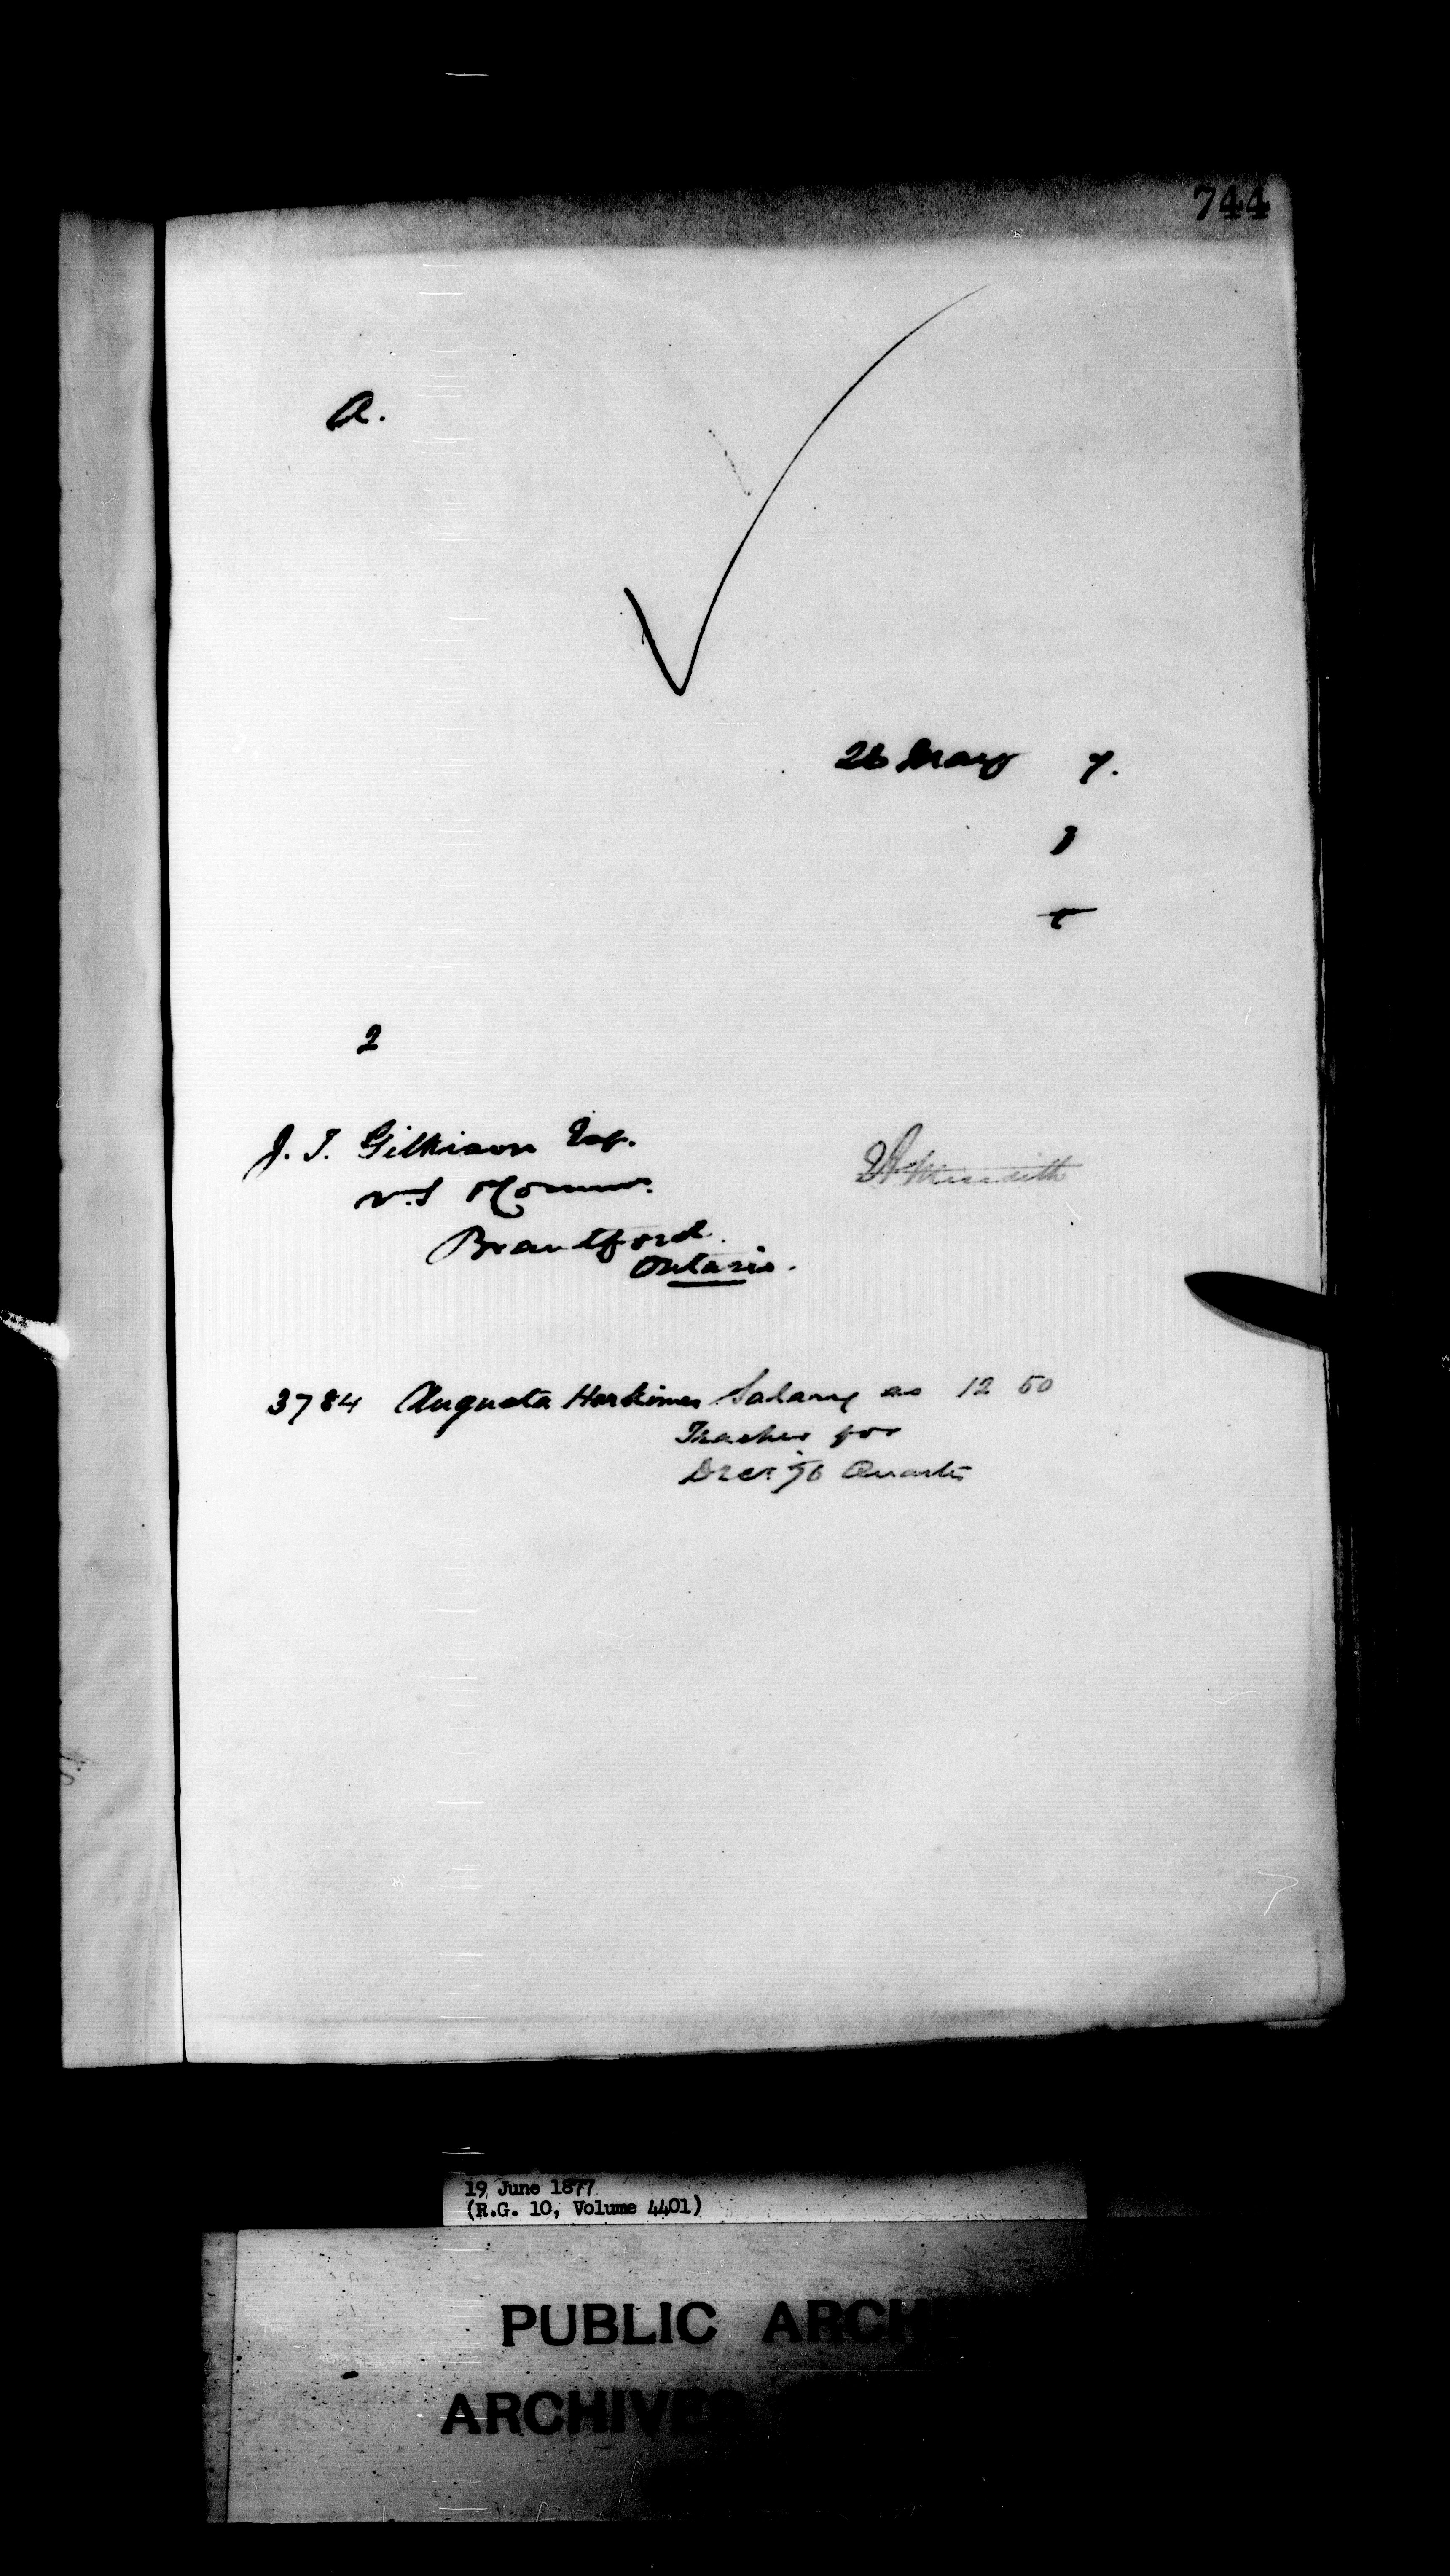 744
A.
26 May 7.
1
t
2
J. T. Gilkison Esq.
V. S & Commr.
Brantford.
Ontario.
3784 Augusta Herkimer Salary as 12 50
Teacher for
Decr. '76 Quarter
19 June 1877
(R.G. 10, Volume 4401)
PUBLIC ARCH
ARCHIVES